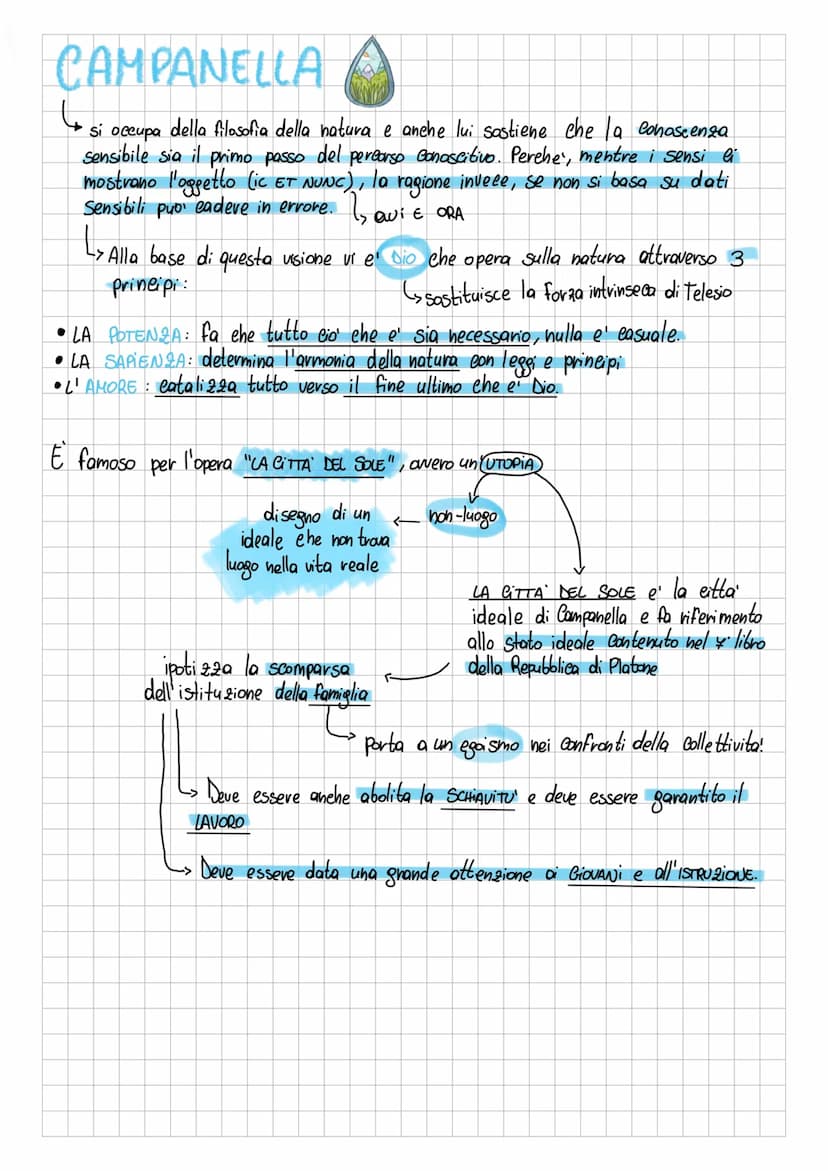 CAMPANELLA
si occupa della filosofia della natura e anche lui sostiene che la conoscenza
sensibile sia il primo passo del percorso conoscitivo. Perche', mentre i sensi ci
mostrano l'oggetto (IC ET NUNC), la ragione invece, se non si basa su dati
sensibili puo' cadere in errore.
QUI E ORA
Alla base di questa visione vi e' Dio che opera sulla natura attraverso 3
principi:
sostituisce la forza intrinseca di Telesio
• LA POTENZA: fa che tutto cio' che e' sia necessario, nulla e' casuale.
• LA SAPIENZA: determina l'armonia della natura con leggi e principi
• L'AMORE: catalizza tutto verso il fine ultimo che e' Dio.
È famoso per l'opera "LA CITTA' DEL SOLE", ovvero un'UTOPIA
non-luogo
disegno di un
ideale che non trova
luogo nella vita reale
LA CITTA' DEL SOLE e' la citta'
ideale di Campanella e fa riferimento
allo stato ideale contenuto nel libro
della Repubblica di Platone
ipotizza la scomparsa
dell'istituzione della famiglia
porta a un egoismo nei confronti della collettivita!
Deve essere anche abolita la SCHIAVITU' e deve essere garantito il
LAVORO
Deve essere data una grande attenzione ai GIOVANI e all'ISTRUZIONE.